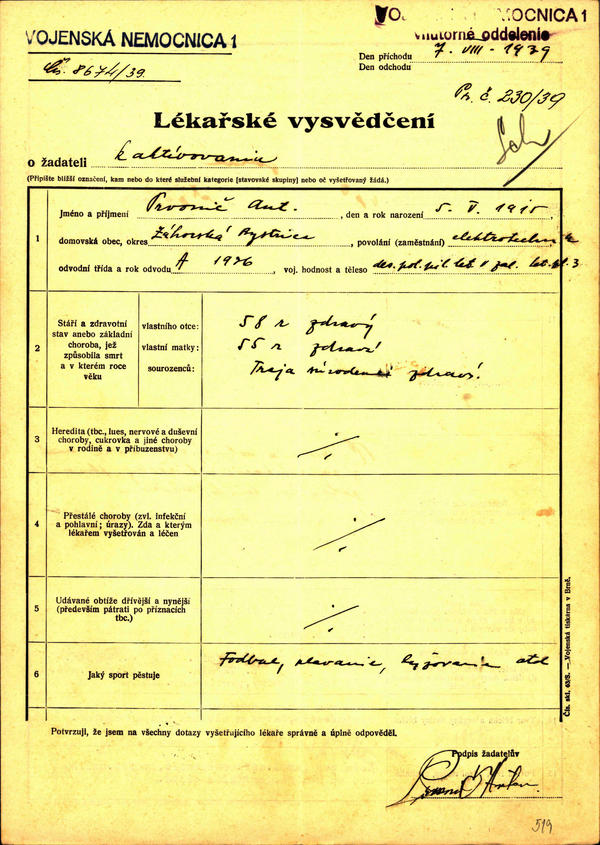 VOJENSKÁ NEMOCNICA 1
Čs. 8674/39.
VOJENSKÁ NEMOCNICA 1
Vnútorné oddelenie
Den příchodu 7. VIII - 1939
Den odchodu
Pr. č. 230/39
Lékařské vysvědčení
o žadateli k aktivovaniu
(Připište bližší označení, kam nebo do které služební kategorie [stavovské skupiny] nebo oč vyšetřovaný žádá.)
1 Jméno a příjmení Prvonič Ant. , den a rok narození 5. V. 1915
domovská obec, okres Záhorská Bystrica , povolání (zaměstnání) elektrotechnik
odvodní třída a rok odvodu A 1936 , voj. hodnost a těleso des. pol. pil. let. v zál. let. pl. 3
2 Stáří a zdravotní stav anebo základní choroba, jež způsobila smrt a v kterém roce věku
vlastního otce: 58 r zdravý
vlastní matky: 55 r zdravá
sourozenců: Traja súrodenci zdraví.
3 Heredita (tbc., lues, nervové a duševní choroby, cukrovka a jiné choroby v rodině a v příbuzenstvu) ./.
4 Přestálé choroby (zvl. infekční a pohlavní; úrazy). Zda a kterým lékařem vyšetřován a léčen ./.
5 Udávané obtíže dřívější a nynější (především pátrati po příznacích tbc.) ./.
6 Jaký sport pěstuje Fodbal, plavanie, lyžovanie atd
Čís. skl. 63/S. — Vojenská tiskárna v Brně.
Potvrzuji, že jsem na všechny dotazy vyšetřujícího lékaře správně a úplně odpověděl.
Podpis žadatelův
519